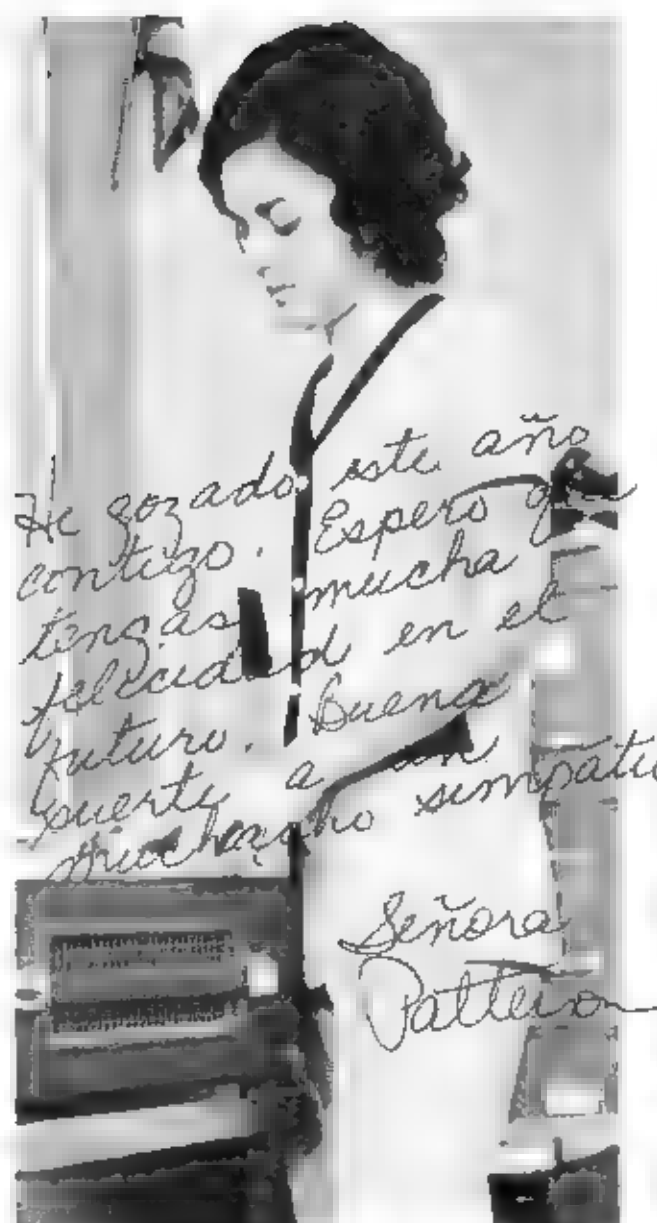 He gozado este año
contigo. Espero que
tengas mucha
felicidad en el
futuro. Buena
suerte a un
muchacho simpatic
Señora
Patterson